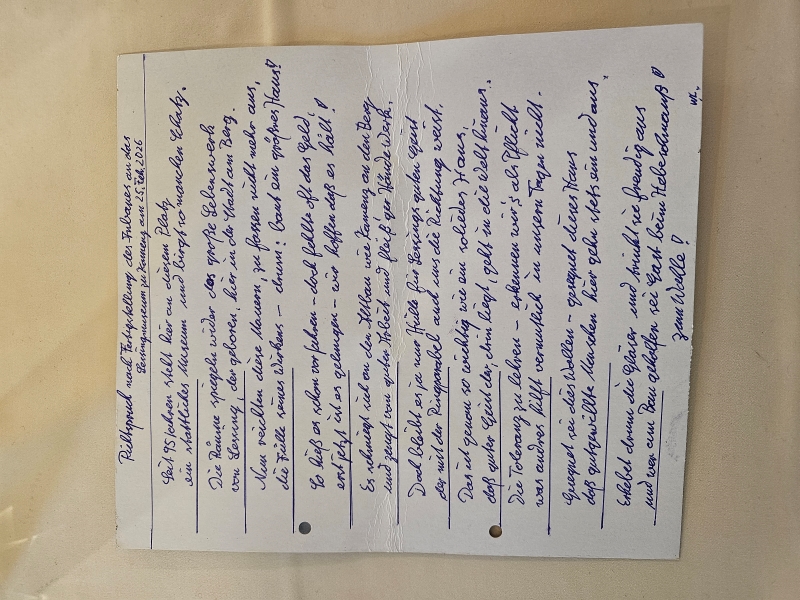 Richtspruch nach Fertigstellung des Anbaues an das
Lessingmuseum zu Kamenz am 25. Feb. 2026
Seit 95 Jahren steht hier an diesem Platz
ein stattliches Museum und birgt so manchen Schatz.
Die Räume spiegeln wider das große Lebenswerk
von Lessing, der geboren, hier in der Stadt am Berg.
Nun reichten diese Mauern zu fassen nicht mehr aus,
die Fülle seines Wirkens – drum: baut ein größ'res Haus!
So hieß es schon vor Jahren – doch fehlte oft das Geld,
erst jetzt ist es gelungen – wir hoffen daß es hält!
Es schmiegt sich an den Altbau wie Kamenz an den Berg
und zeugt von guter Arbeit und Fleiß der Hände Werk.
Doch bleibt es ja nur Hülle für Lessings guten Geist
der mit der Ringparabel auch uns die Richtung weist.
Das ist genau so wichtig wie ein solides Haus,
daß guter Geist der drin liegt, geht in die Welt hinaus.
Die Toleranz zu lehren – erkennen wir's als Pflicht
was andres hilft vermutlich in unsern Tagen nicht.
Gesegnet sei dies Wollen – gesegnet dieses Haus
daß gutgewillte Menschen hier gehn stets ein und aus.
Erhebet drum die Gläser und trinkt sie freudig aus
und wer am Bau geholfen sei Gast beim Hebeschmauß!
Zum Wohle!